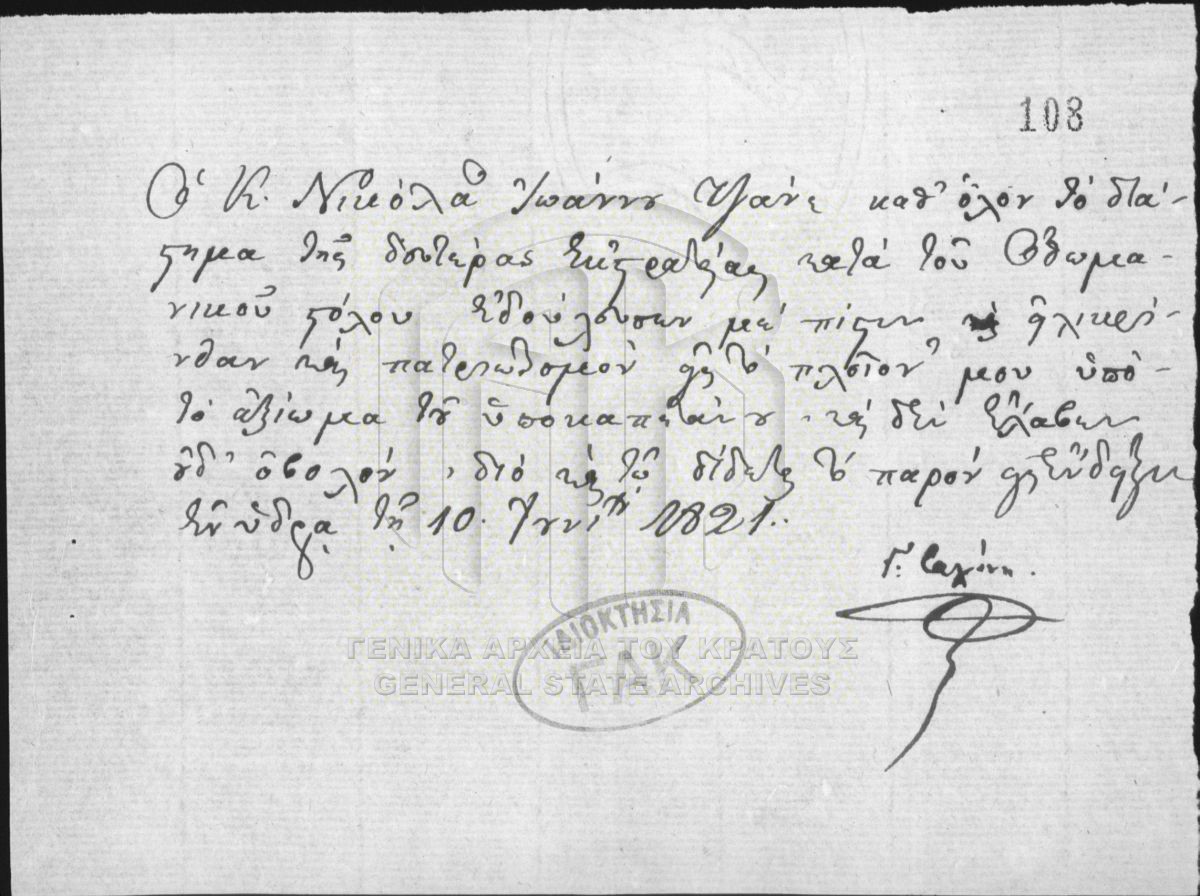 108
Ὁ Κ. Νικόλαος Ἰωάννου Τζάνε καθ' ὅλον τὸ διά-
στημα τῆς δευτέρας ἐκστρατείας κατὰ τοῦ Ὀθωμα-
νικοῦ στόλου ἐδούλευσεν μὲ πίστιν καὶ εἰλικρί-
νειαν καὶ πατριωτισμὸν εἰς τὸ πλοῖον μου ὑπὸ
τὸ ἀξίωμα τοῦ ὑποκαπετάνου, καὶ δὲν ἔλαβεν
οὐδ' ὀβολόν, διὸ καὶ τῷ δίδεται τὸ παρὸν εἰς ἔνδειξιν
ἐν ὕδρᾳ τῇ 10. Ἰουνίου 1821.
Γ: Σαχίνη.
ΙΔΙΟΚΤΗΣΙΑ
ΓΑΚ
ΓΕΝΙΚΑ ΑΡΧΕΙΑ ΤΟΥ ΚΡΑΤΟΥΣ
GENERAL STATE ARCHIVES